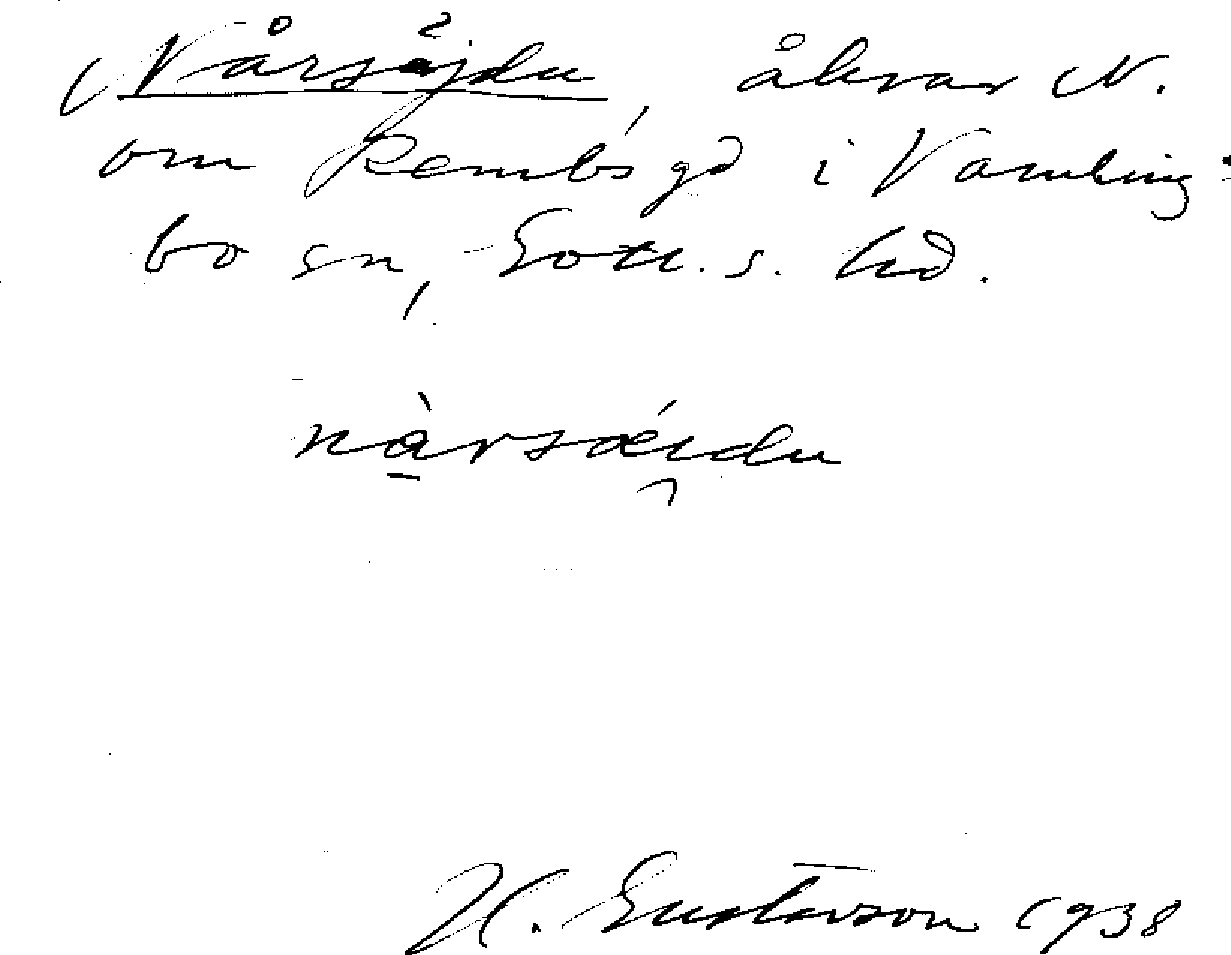 Nårsäjdu, åkrar N.
om Rembs gd i Vamling-
bo sn, Gotl. s. hd.
nàrsǽidu
H. Gustavson 1938